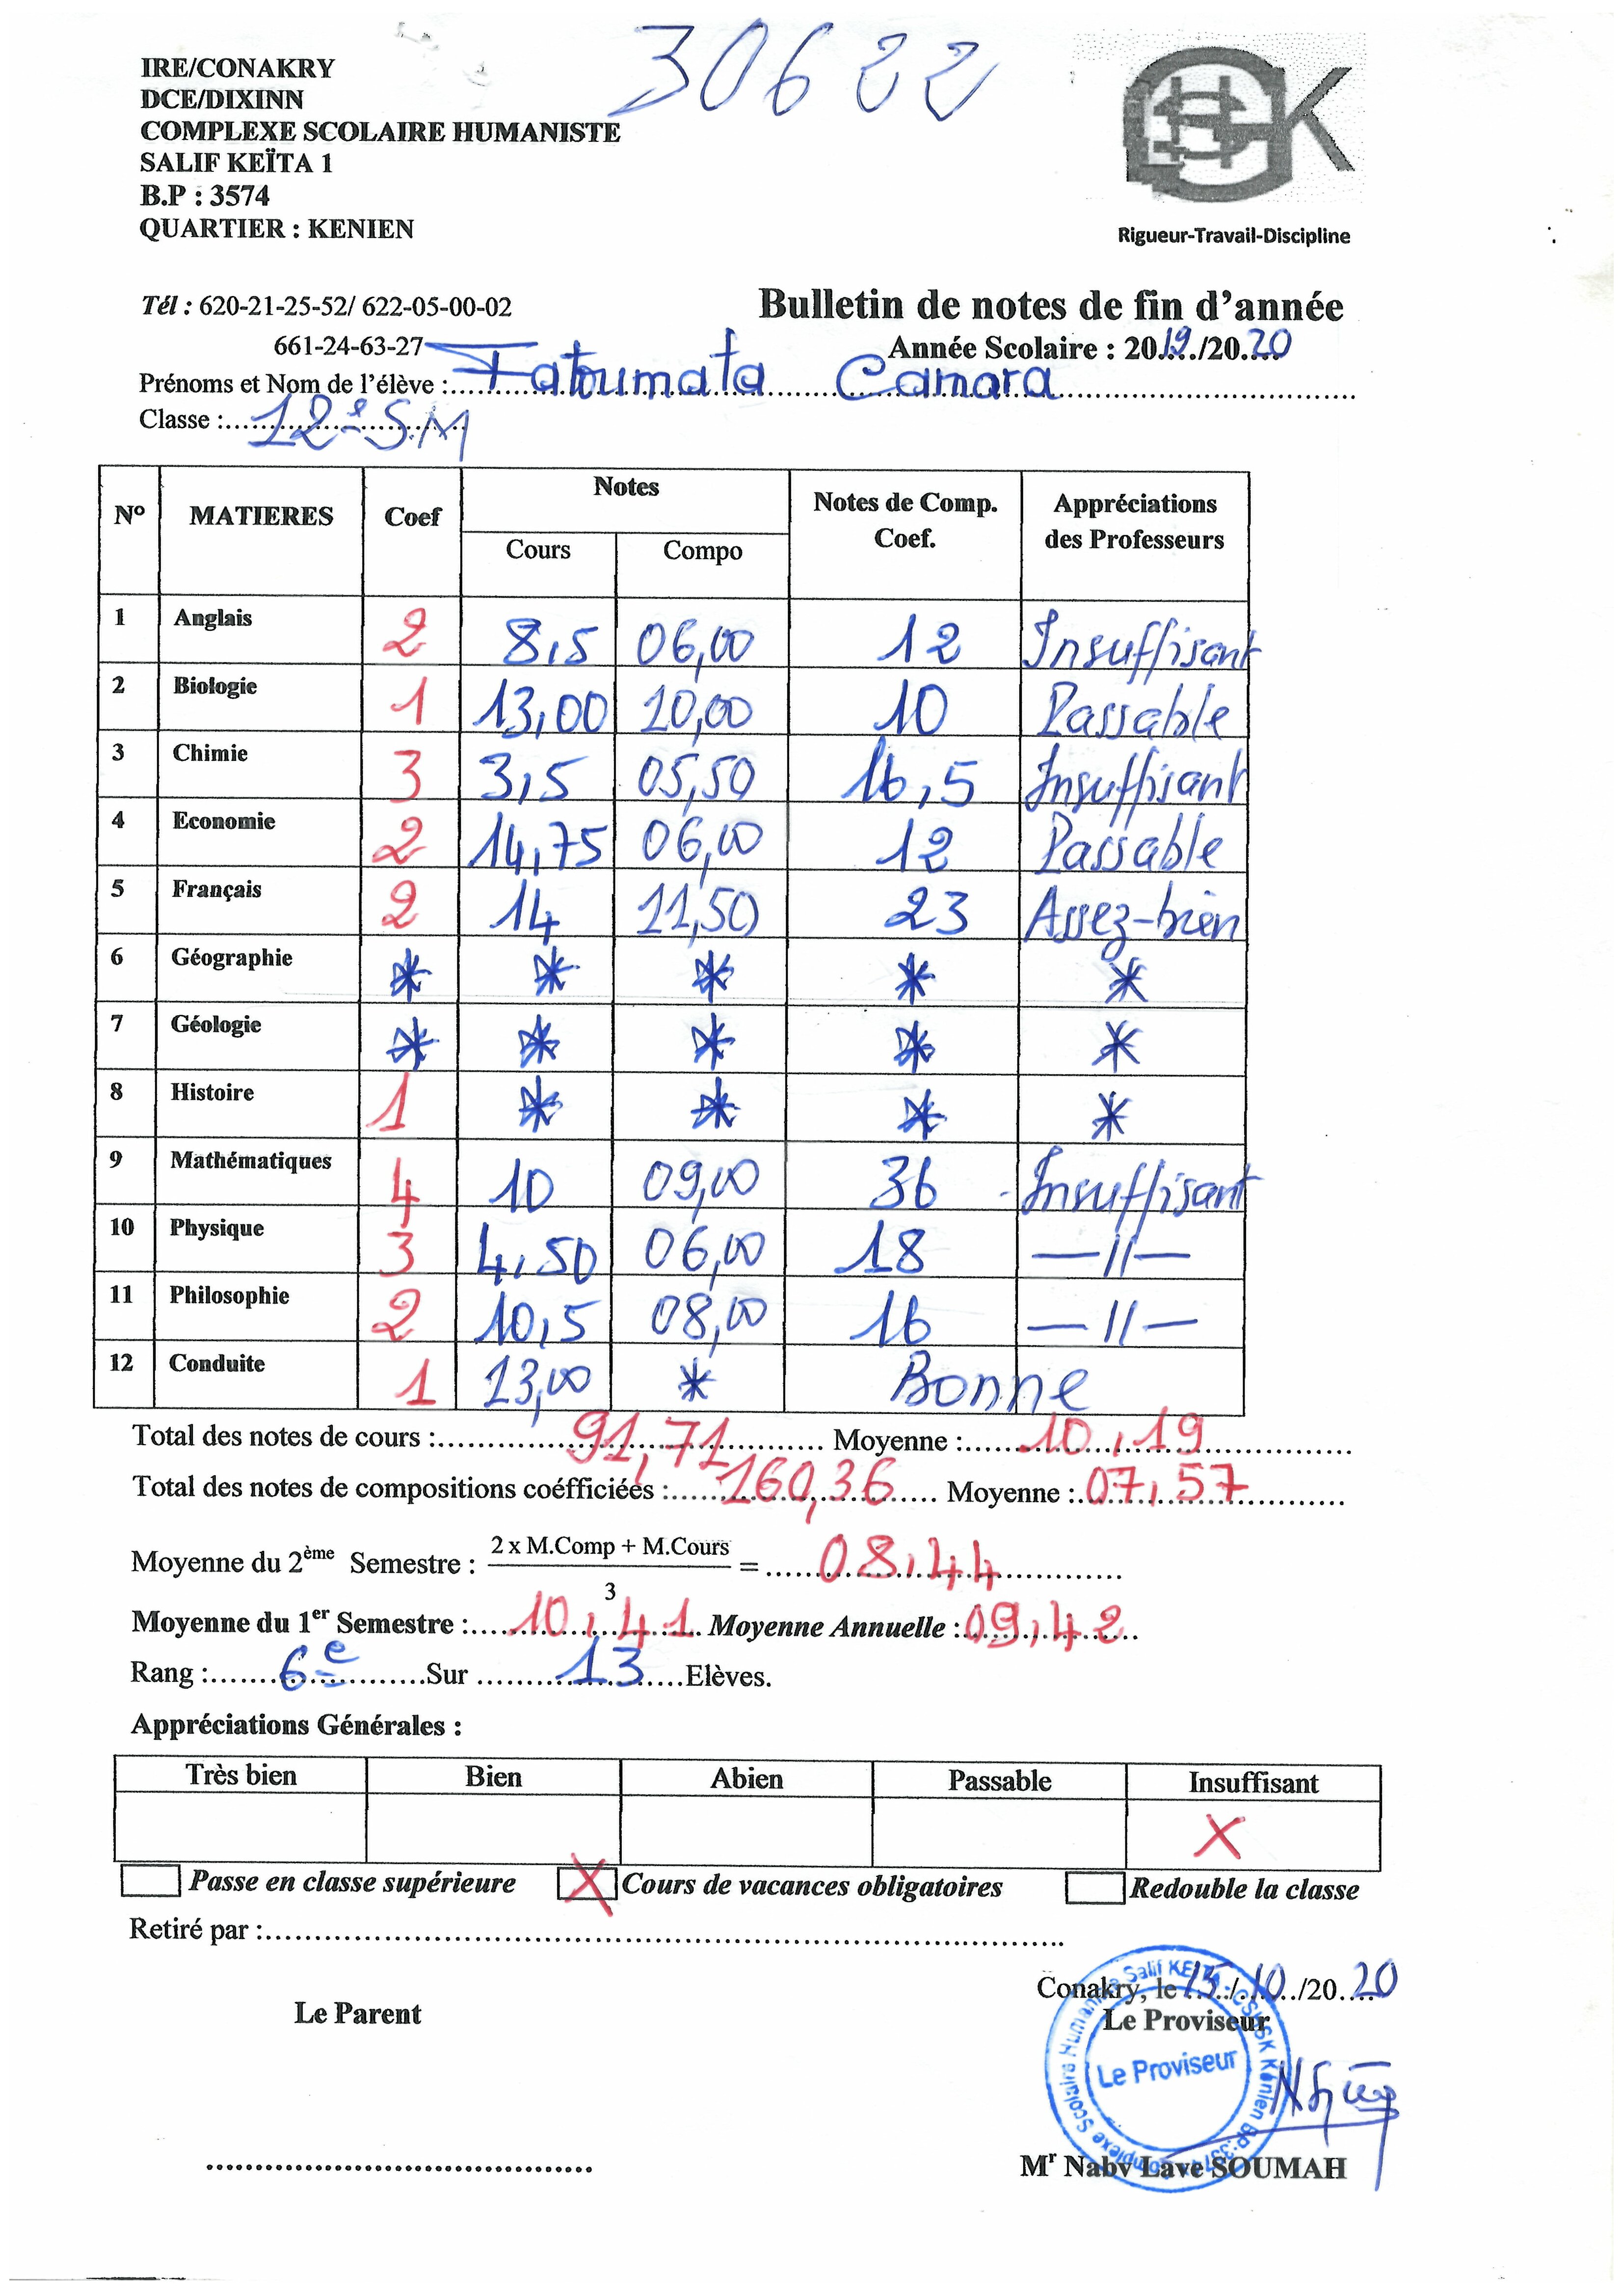 30622
IRE/CONAKRY
DCE/DIXINN
COMPLEXE SCOLAIRE HUMANISTE
SALIF KEÏTA 1
B.P : 3574
QUARTIER : KENIEN
Rigueur-Travail-Discipline
Tél : 620-21-25-52/ 622-05-00-02
661-24-63-27
Bulletin de notes de fin d'année
Année Scolaire : 2019/2020
Prénoms et Nom de l'élève : Fatoumata Camara
Classe : 12e S.M
N° MATIERES Coef Notes Notes de Comp. Coef. Appréciations des Professeurs
Cours Compo
1 Anglais 2 8,5 06,00 12 Insuffisant
2 Biologie 1 13,00 10,00 10 Passable
3 Chimie 3 3,5 05,50 16,5 Insuffisant
4 Economie 2 14,75 06,00 12 Passable
5 Français 2 14 11,50 23 Assez-bien
6 Géographie * * * * *
7 Géologie * * * * *
8 Histoire 1 * * * *
9 Mathématiques 4 10 09,00 36 Insuffisant
10 Physique 3 4,50 06,00 18 —//—
11 Philosophie 2 10,5 08,00 16 —//—
12 Conduite 1 13,00 * Bonne
Total des notes de cours : 91,71 Moyenne : 10,19
Total des notes de compositions coéfficiées : 160,36 Moyenne : 07,57
Moyenne du 2ème Semestre : 2 x M.Comp + M.Cours / 3 = 08,44
Moyenne du 1er Semestre : 10,41 Moyenne Annuelle : 09,42
Rang : 6e Sur 13 Elèves.
Appréciations Générales :
Très bien Bien Abien Passable Insuffisant
X
Passe en classe supérieure X Cours de vacances obligatoires Redouble la classe
Retiré par :
Conakry, le 15/10/2020
Le Parent Le Proviseur
Le Proviseur
Mr Naby Laye SOUMAH